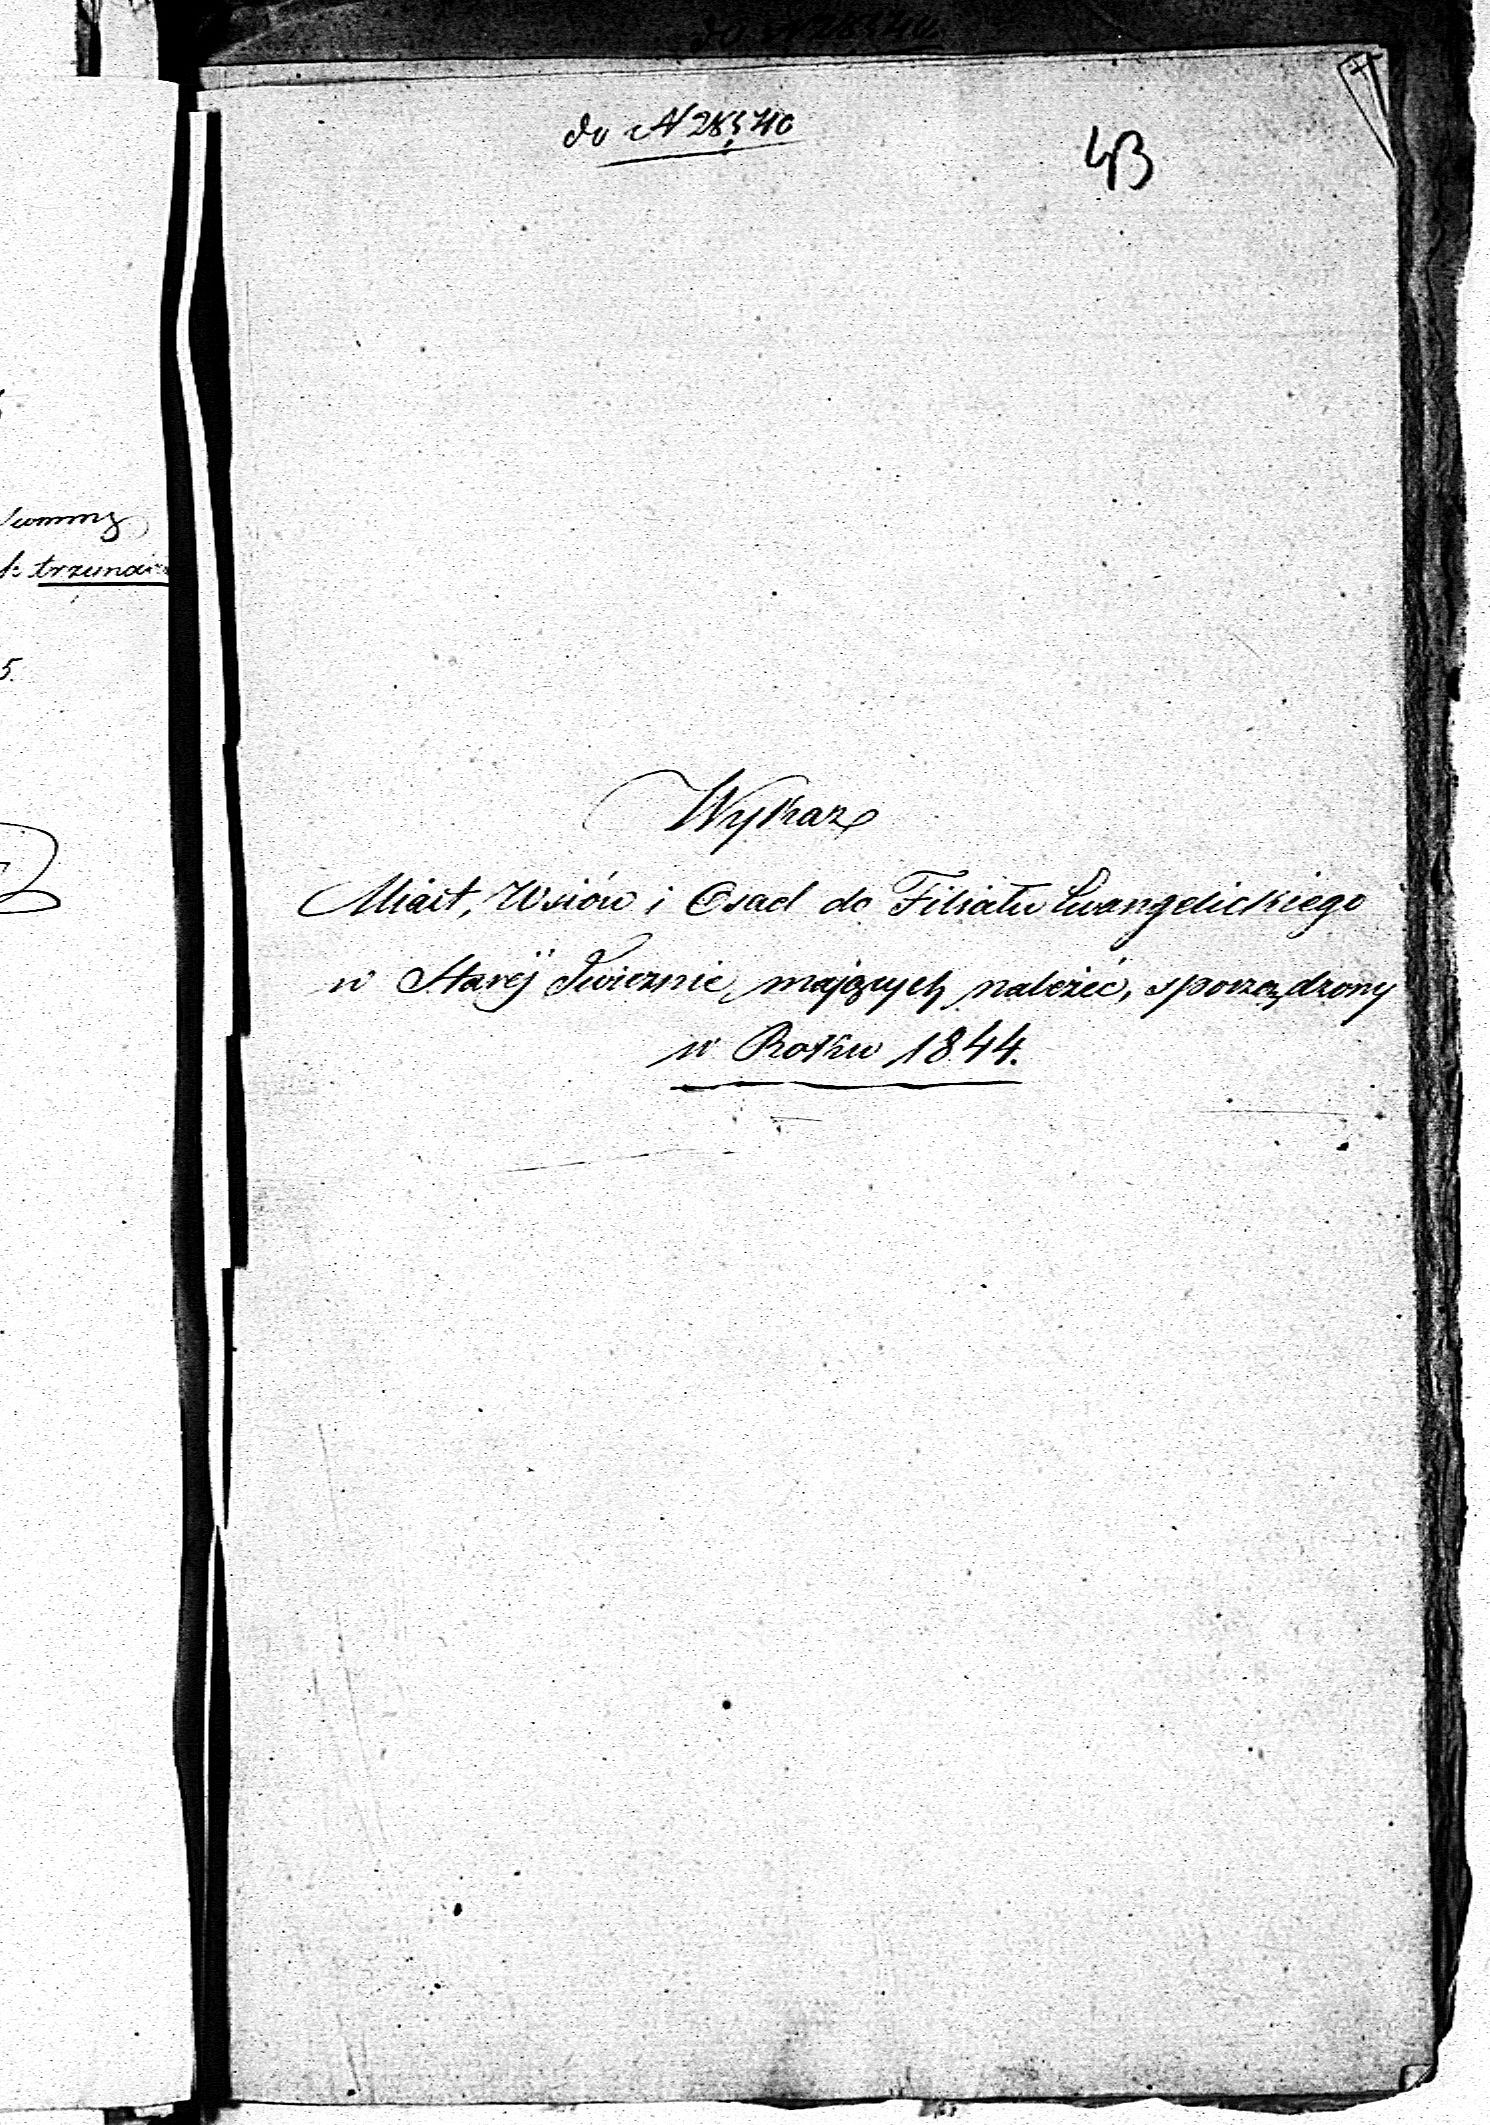 do N 28540
43
Wykaz
Miast, Wsiów i Osad do Filiału Ewangelickiego
w Starej Iwicznie, mających należeć, sporządzony
w Rokw 1844.
trzyna
5.